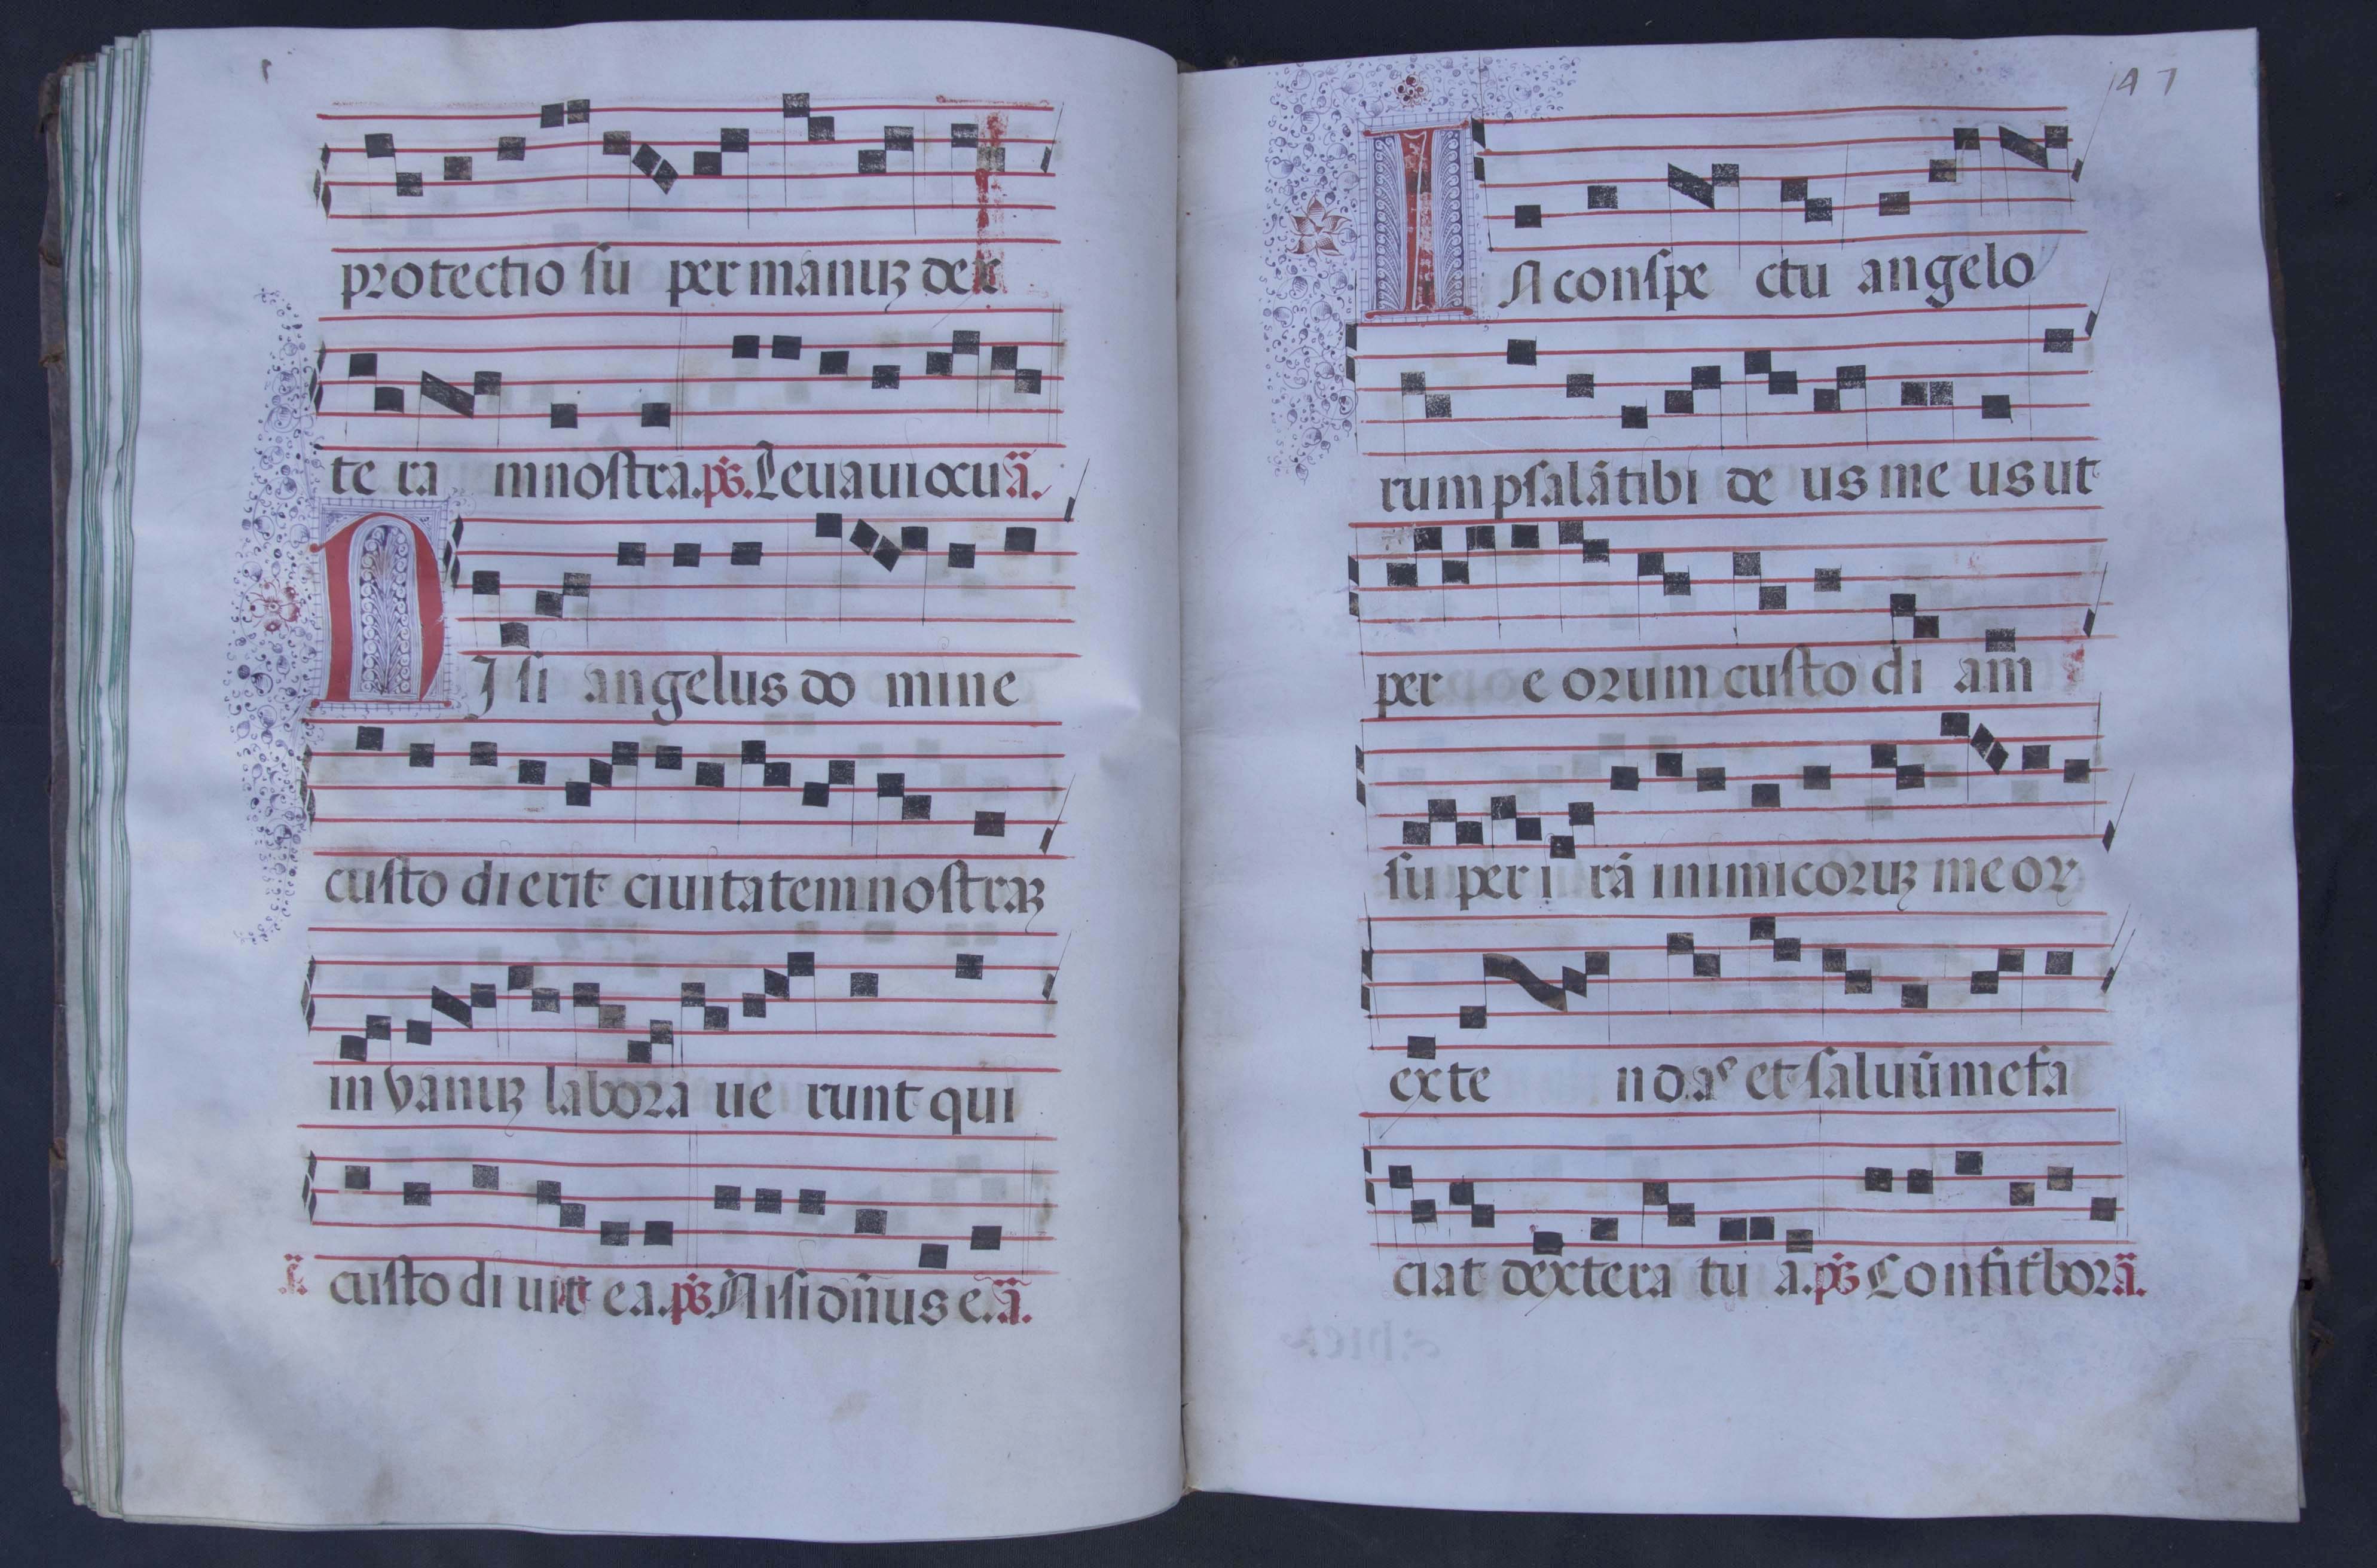 protectio su per manuꝫ dex
te ra m nostra. ps̄. Leuaui ocu ā.
NIsi angelus do mine
custo dierit ciuitatem nostraꝫ
in vanuꝫ labora ue runt qui
custo di unt e a. ps̄ Nisi dn̄us e. ā.
47
IN conspe ctu angelo
rum psalā tibi de us me us ut
per e orum custo di am̄
su per i rā inimicoruꝫ me oꝝ
exte ndas et saluū me fa
ciat dextera tu a. ps̄ Confitebor ā.